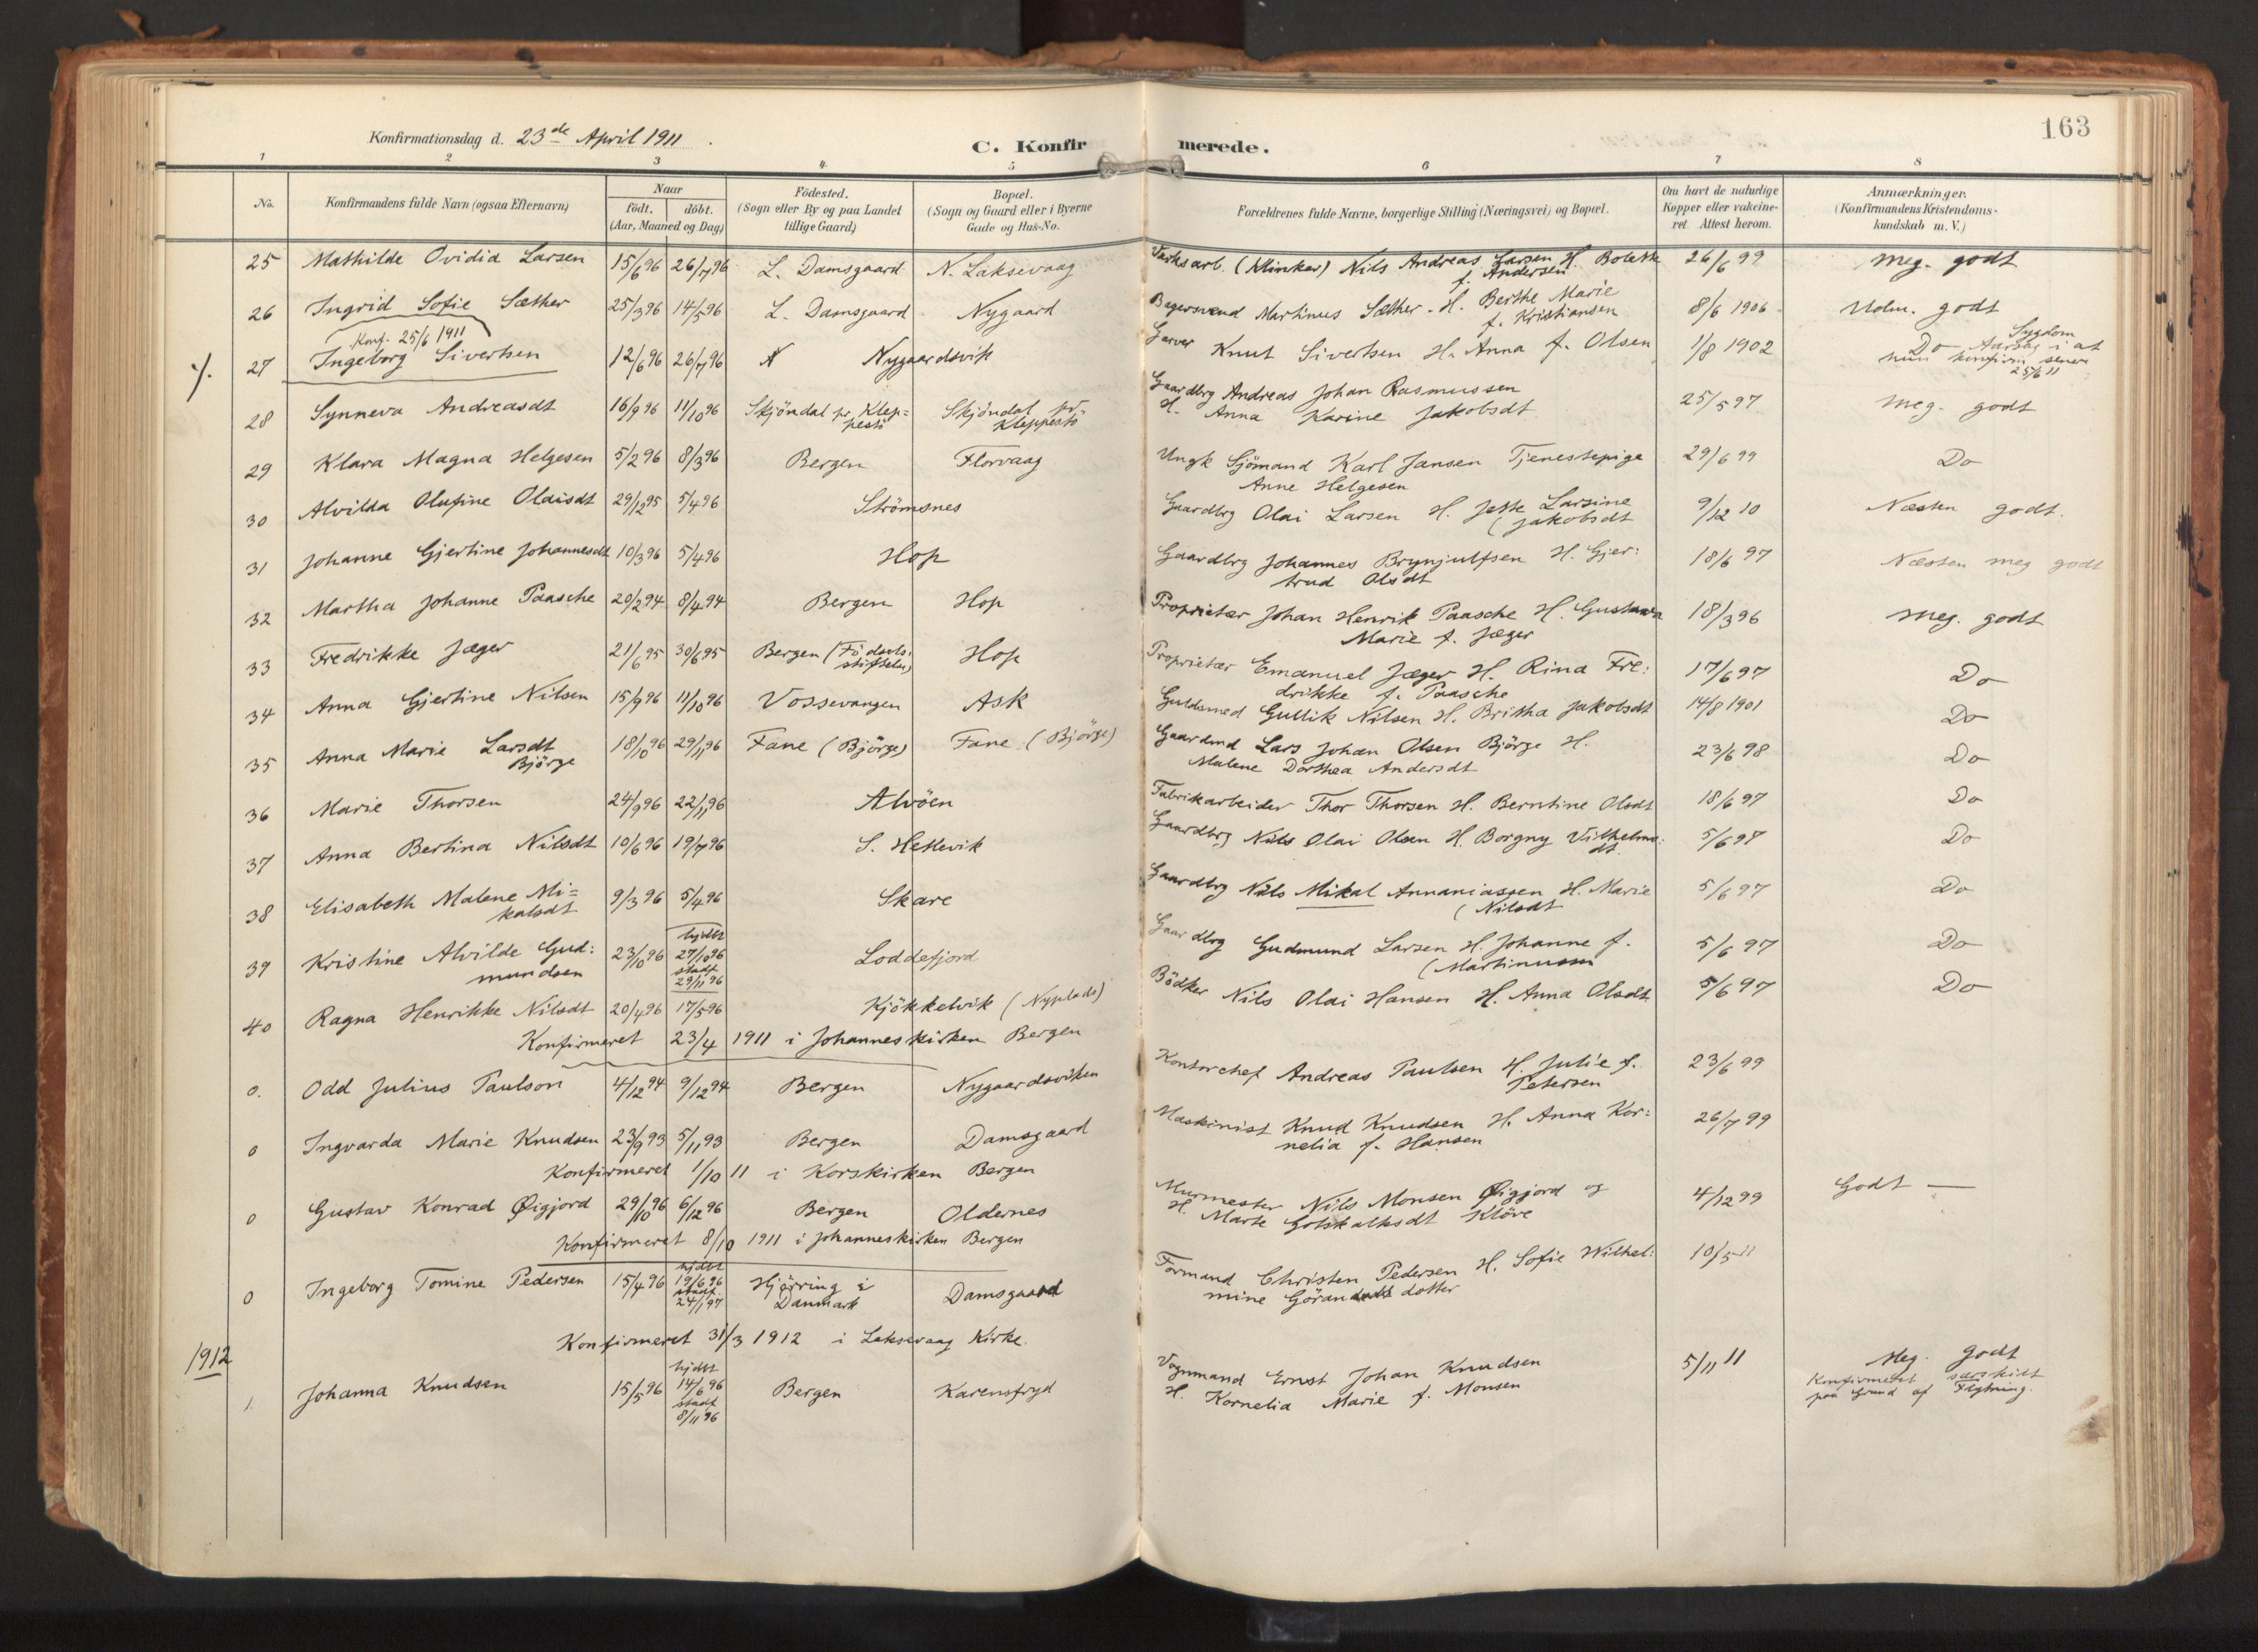 163
Konfirmationsdag d. 23de April 1911.
C. Konfirmerede.
1 2 3 4 5 6 7 8
No. Konfirmandens fulde Navn (ogsaa Efternavn) Naar födt. döbt. (Aar, Maaned og Dag) Födested. (Sogn eller By og paa Landet tillige Gaard) Bopæl. (Sogn og Gaard eller i Byerne Gade og Hus-No. Forældrenes fulde Navne, borgerlige Stilling (Næringsvei) og Bopæl. Om havt de naturlige Kopper eller vakcineret. Attest herom. Anmærkninger. (Konfirmandens Kristendomskundskab m. V.)
25 Mathilde Ovidia Larsen 15/6 96 26/7 96 L. Damsgaard N. Laksevaag Værksarb. (Klinker) Nils Andreas Larsen H. Bolette 26/6 99 Meg. godt
f. Andersen
26 Ingrid Sofie Sæther 25/3 96 14/5 96 L. Damsgaard Nygaard Bagersvend Martinus Sæther. H. Berthe Marie 8/6 1906 Udm. godt
f. Kristiansen
Konf. 25/6 1911
27 Ingeborg Sivertsen 12/6 96 26/7 96 Nygaardsvik Garver Knut Sivertsen H. Anna f. Olsen 1/8 1902 Do Sygdom Aarsag i at
hun konfirm. senere
25/6 11
28 Synneva Andreasdt 16/9 96 11/10 96 Skjöndal pr. Klep=
pestö Skjöndal pr.
Kleppestö Gaardbrg Andreas Johan Rasmussen 25/5 97 Meg. godt
H. Anna Karine Jakobsdt
29 Klara Magna Helgesen 5/2 96 8/3 96 Bergen Florvaag Ungk Sjömand Karl Jansen Tjenestepige 29/6 99 Do
Anne Helgesen
30 Alvilda Olufine Olaisdt 29/12 95 5/4 96 Strömsnes Gaardbrg Olai Larsen H. Jette Larsine 9/12 10 Næsten godt.
(Jakobsdt
31 Johanne Gjertine Johannesdt 10/3 96 5/4 96 Hop Gaardbrg Johannes Brynjulfsen H. Gjer: 18/6 97 Næsten meg godt
trud Olsdt
32 Martha Johanne Paasche 20/2 94 8/4 94 Bergen Hop Proprietær Johan Henrik Paasche H. Gustava 18/3 96 Meg. godt
Marie f. Jæger
33 Fredrikke Jæger 21/6 95 30/6 95 Bergen (Födsels:
stiftelse) Hop Proprietær Emanuel Jæger H. Rina Fre: 17/6 97 Do
drikke f. Paasche
34 Anna Gjertine Nilsen 15/9 96 11/10 96 Vossevangen Ask Guldsmed Gullik Nilsen H. Britha Jakobsdt 14/8 1901 Do
35 Anna Marie Larsdt
Björge 18/10 96 29/11 96 Fane (Björge) Fane (Björge) Gaardmd Lars Johan Olsen Björge H. 23/6 98 Do
Malene Dorthea Andersdt
36 Marie Thorsen 24/9 96 22/11 96 Alvöen Fabrikarbeider Thor Thorsen H. Berntine Olsdt 18/6 97 Do
37 Anna Bertina Nilsdt 10/6 96 19/7 96 S. Hetlevik Gaardbrg Nils Olai Olsen H. Borgny Vilhelms: 5/6 97 Do
dt.
38 Elisabeth Malene Mi=
kalsdt 9/3 96 5/4 96 Skare Gaardbrg Nils Mikal Annaniassen H. Marie 5/6 97 Do
(Nilsdt
39 Kristine Alvilde Gud:
mundsen 23/10 96 hjdbt
27/10 96
stadf
29/11 96 Loddefjord Gaardbrg Gudmund Larsen H. Johanne f. 5/6 97 Do
(Martinussen
40 Ragna Henrikke Nilsdt 20/4 96 17/5 96 Kjökkelvik (Nyplads) Bödker Nils Olai Hansen H. Anna Olsdt. 5/6 97 Do
Konfirmeret 23/4 1911 i Johanneskirken Bergen
0. Odd Julius Paulson 4/12 94 9/12 94 Bergen Nygaardsviken Kontorchef Andreas Paulsen H. Julie f. 23/6 99
Petersen
0 Ingvarda Marie Knudsen 23/9 93 5/11 93 Bergen Damsgaard Maskinist Knud Knudsen H. Anna Kor: 26/7 99
nelia f. Hansen
Konfirmeret 1/10 11 i Korskirken Bergen
0 Gustav Konrad Øigjord 29/10 96 6/12 96 Bergen Oldernes Murmester Nils Monsen Øigjord og 4/12 99 Godt —
H. Marte Gotskalksdt Klöve
Konfirmeret 8/10 1911 i Johanneskirken Bergen
0 Ingeborg Tomine Pedersen 15/4 96 hjdbt
19/6 96
stadf.
24/1 97 Hjörring i
Danmark Damsgaard Formand Christen Pedersen H. Sofie Wilhel: 10/5 11
mine Göran dotter
Konfirmeret 31/3 1912 i Laksevaag Kirke.
1912
1. Johanna Knudsen 15/5 96 hjdbt
14/6 96
stadf
8/11 96 Bergen Karensfryd Vognmand Ernst Johan Knudsen 5/11 11 Meg. godt
H. Kornelia Marie f. Monsen Konfirmeret særskilt
paa Grund af Flytning.